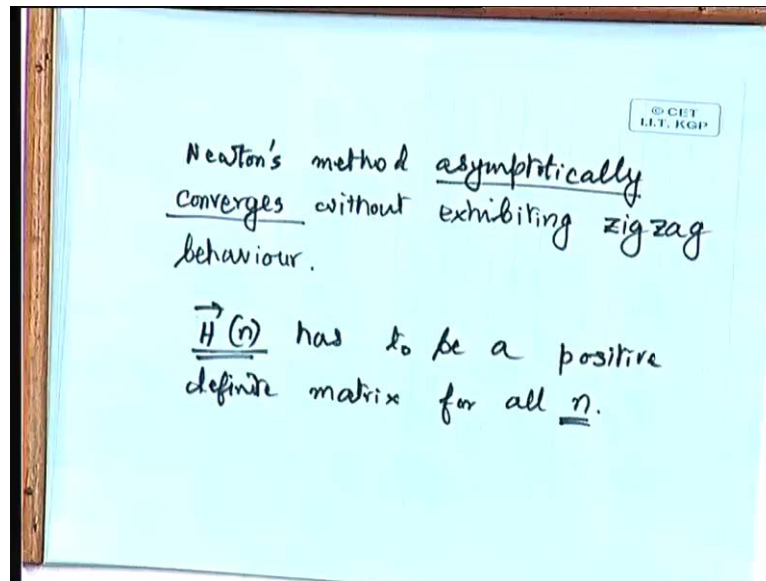 © CET
I.I.T. KGP
Newton's method asymptotically
converges without exhibiting zigzag
behaviour.
H⃗(n) has to be a positive
definite matrix for all n.